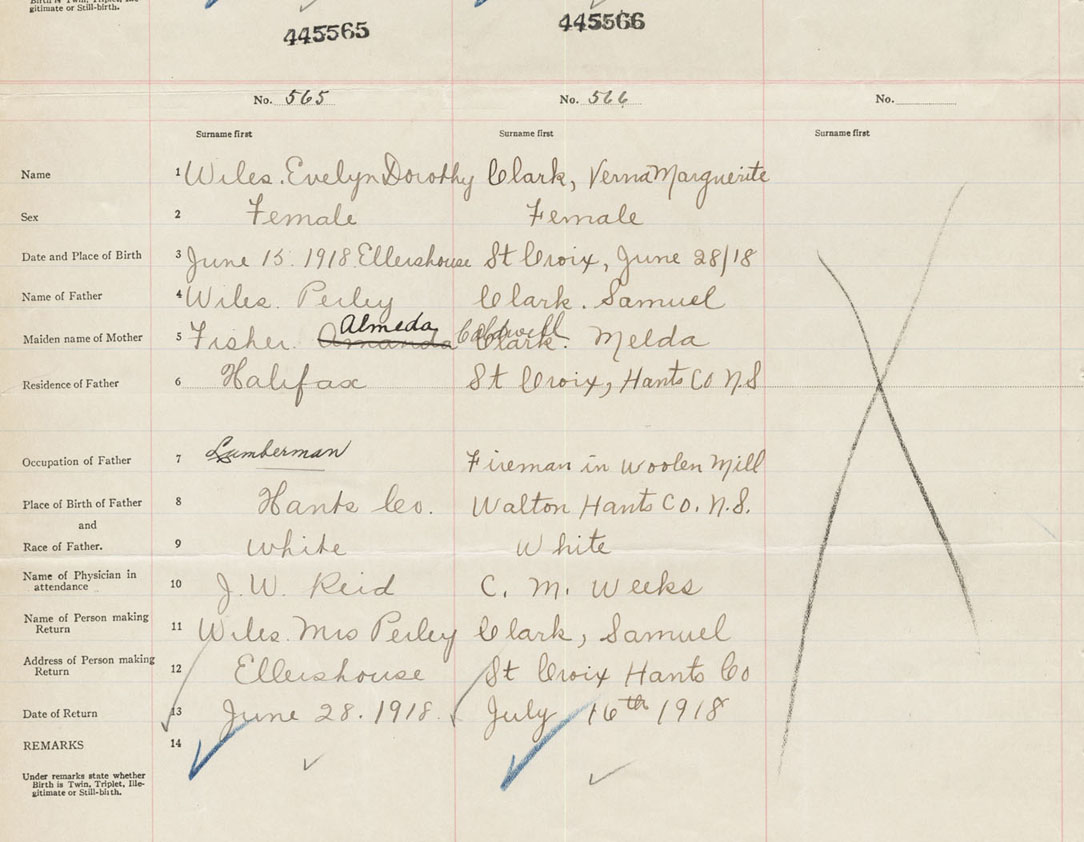 Birth is Twin, Triplet, Ille-
gitimate or Still-birth.
445565 445566
No. 565 No. 566 No.
Surname first Surname first Surname first
Name 1 Wiles. Evelyn Dorothy Clark, Verna Marguerite
Sex 2 Female Female
Date and Place of Birth 3 June 15. 1918. Ellershouse St Croix, June 28/18
Name of Father 4 Wiles. Perley Clark. Samuel
Almeda Caldwell
Maiden name of Mother 5 Fisher. Amanda Clark. Melda
Residence of Father 6 Halifax St Croix, Hants Co N.S
Occupation of Father 7 Lumberman Fireman in Woolen Mill
Place of Birth of Father 8 Hants Co. Walton Hants Co. N.S.
and
Race of Father. 9 White White
Name of Physician in
attendance 10 J. W. Reid C. M. Weeks
Name of Person making
Return 11 Wiles. Mrs Perley Clark, Samuel
Address of Person making
Return 12 Ellershouse St Croix Hants Co
Date of Return 13 June 28. 1918. July 16th 1918
REMARKS 14
Under remarks state whether
Birth is Twin, Triplet, Ille-
gitimate or Still-birth.